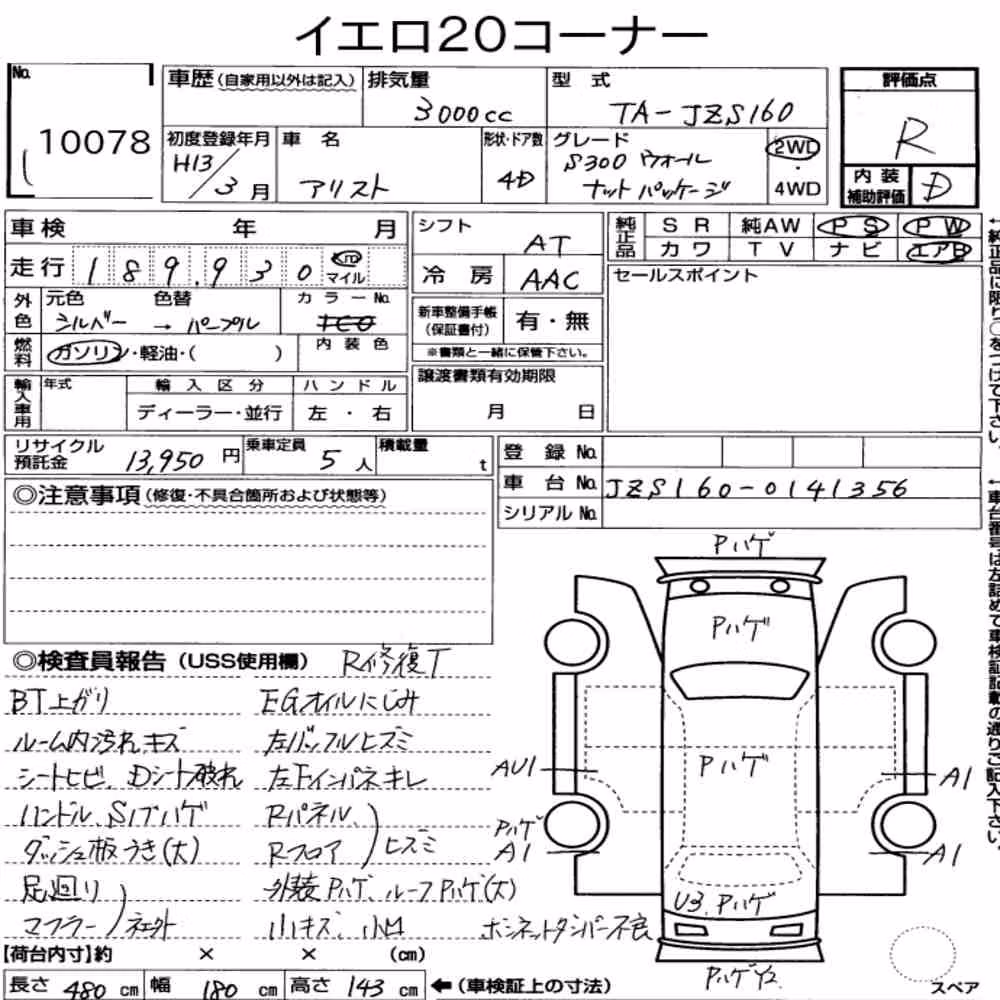 イエロ20コーナー
No. 10078
車歴(自家用以外は記入)
排気量 3000cc
型式 TA-JZS160
評価点 R
初度登録年月 H13/3月
車名 アリスト
形状・ドア数 4D
グレード S300 ウォール
ナットパッケージ
2WD
4WD
内装補助評価 D
車検 年 月
走行 189,930 km マイル
シフト AT
冷房 AAC
純正品 SR 純AW PS PW
カワ TV ナビ エアB
セールスポイント
外色 元色 シルバー → 色替 パープル
カラーNo.
燃料 ガソリン・軽油・( )
内装色
新車整備手帳(保証書付) 有・無
※書類と一緒に保管下さい。
輸入車用 年式 輸入区分 ハンドル
ディーラー・並行 左・右
譲渡書類有効期限
月 日
リサイクル預託金 13,950円
乗車定員 5人
積載量 t
登録No.
車台No. JZS160-0141356
シリアルNo.
◎注意事項(修復・不具合箇所および状態等)
◎検査員報告(USS使用欄) R修復T
BT上ガリ EGオイルにじみ
ルーム内汚れキズ 左バッフルヒズミ
シートヒビ、Dシート破れ 左下インパネキレ
ハンドル、SITハゲ Rパネル、
ダッシュ板うき(大) Rフロア)ヒズミ
足廻り 外装Pハゲ、ルーフPハゲ(大)
マフラー)社外 小キズ、小M ボンネットダンパー不良
【荷台内寸】約 × × (cm)
長さ 480 cm 幅 180 cm 高さ 143 cm ←(車検証上の寸法)
Pハゲ
Pハゲ
Pハゲ
AU1
A1
Pハゲ
A1
A1
U3、Pハゲ
PハゲY2
スペア
←純正品に限り○をつけて下さい。
←車台番号は左詰めで車検証記載の通りご記入下さい。